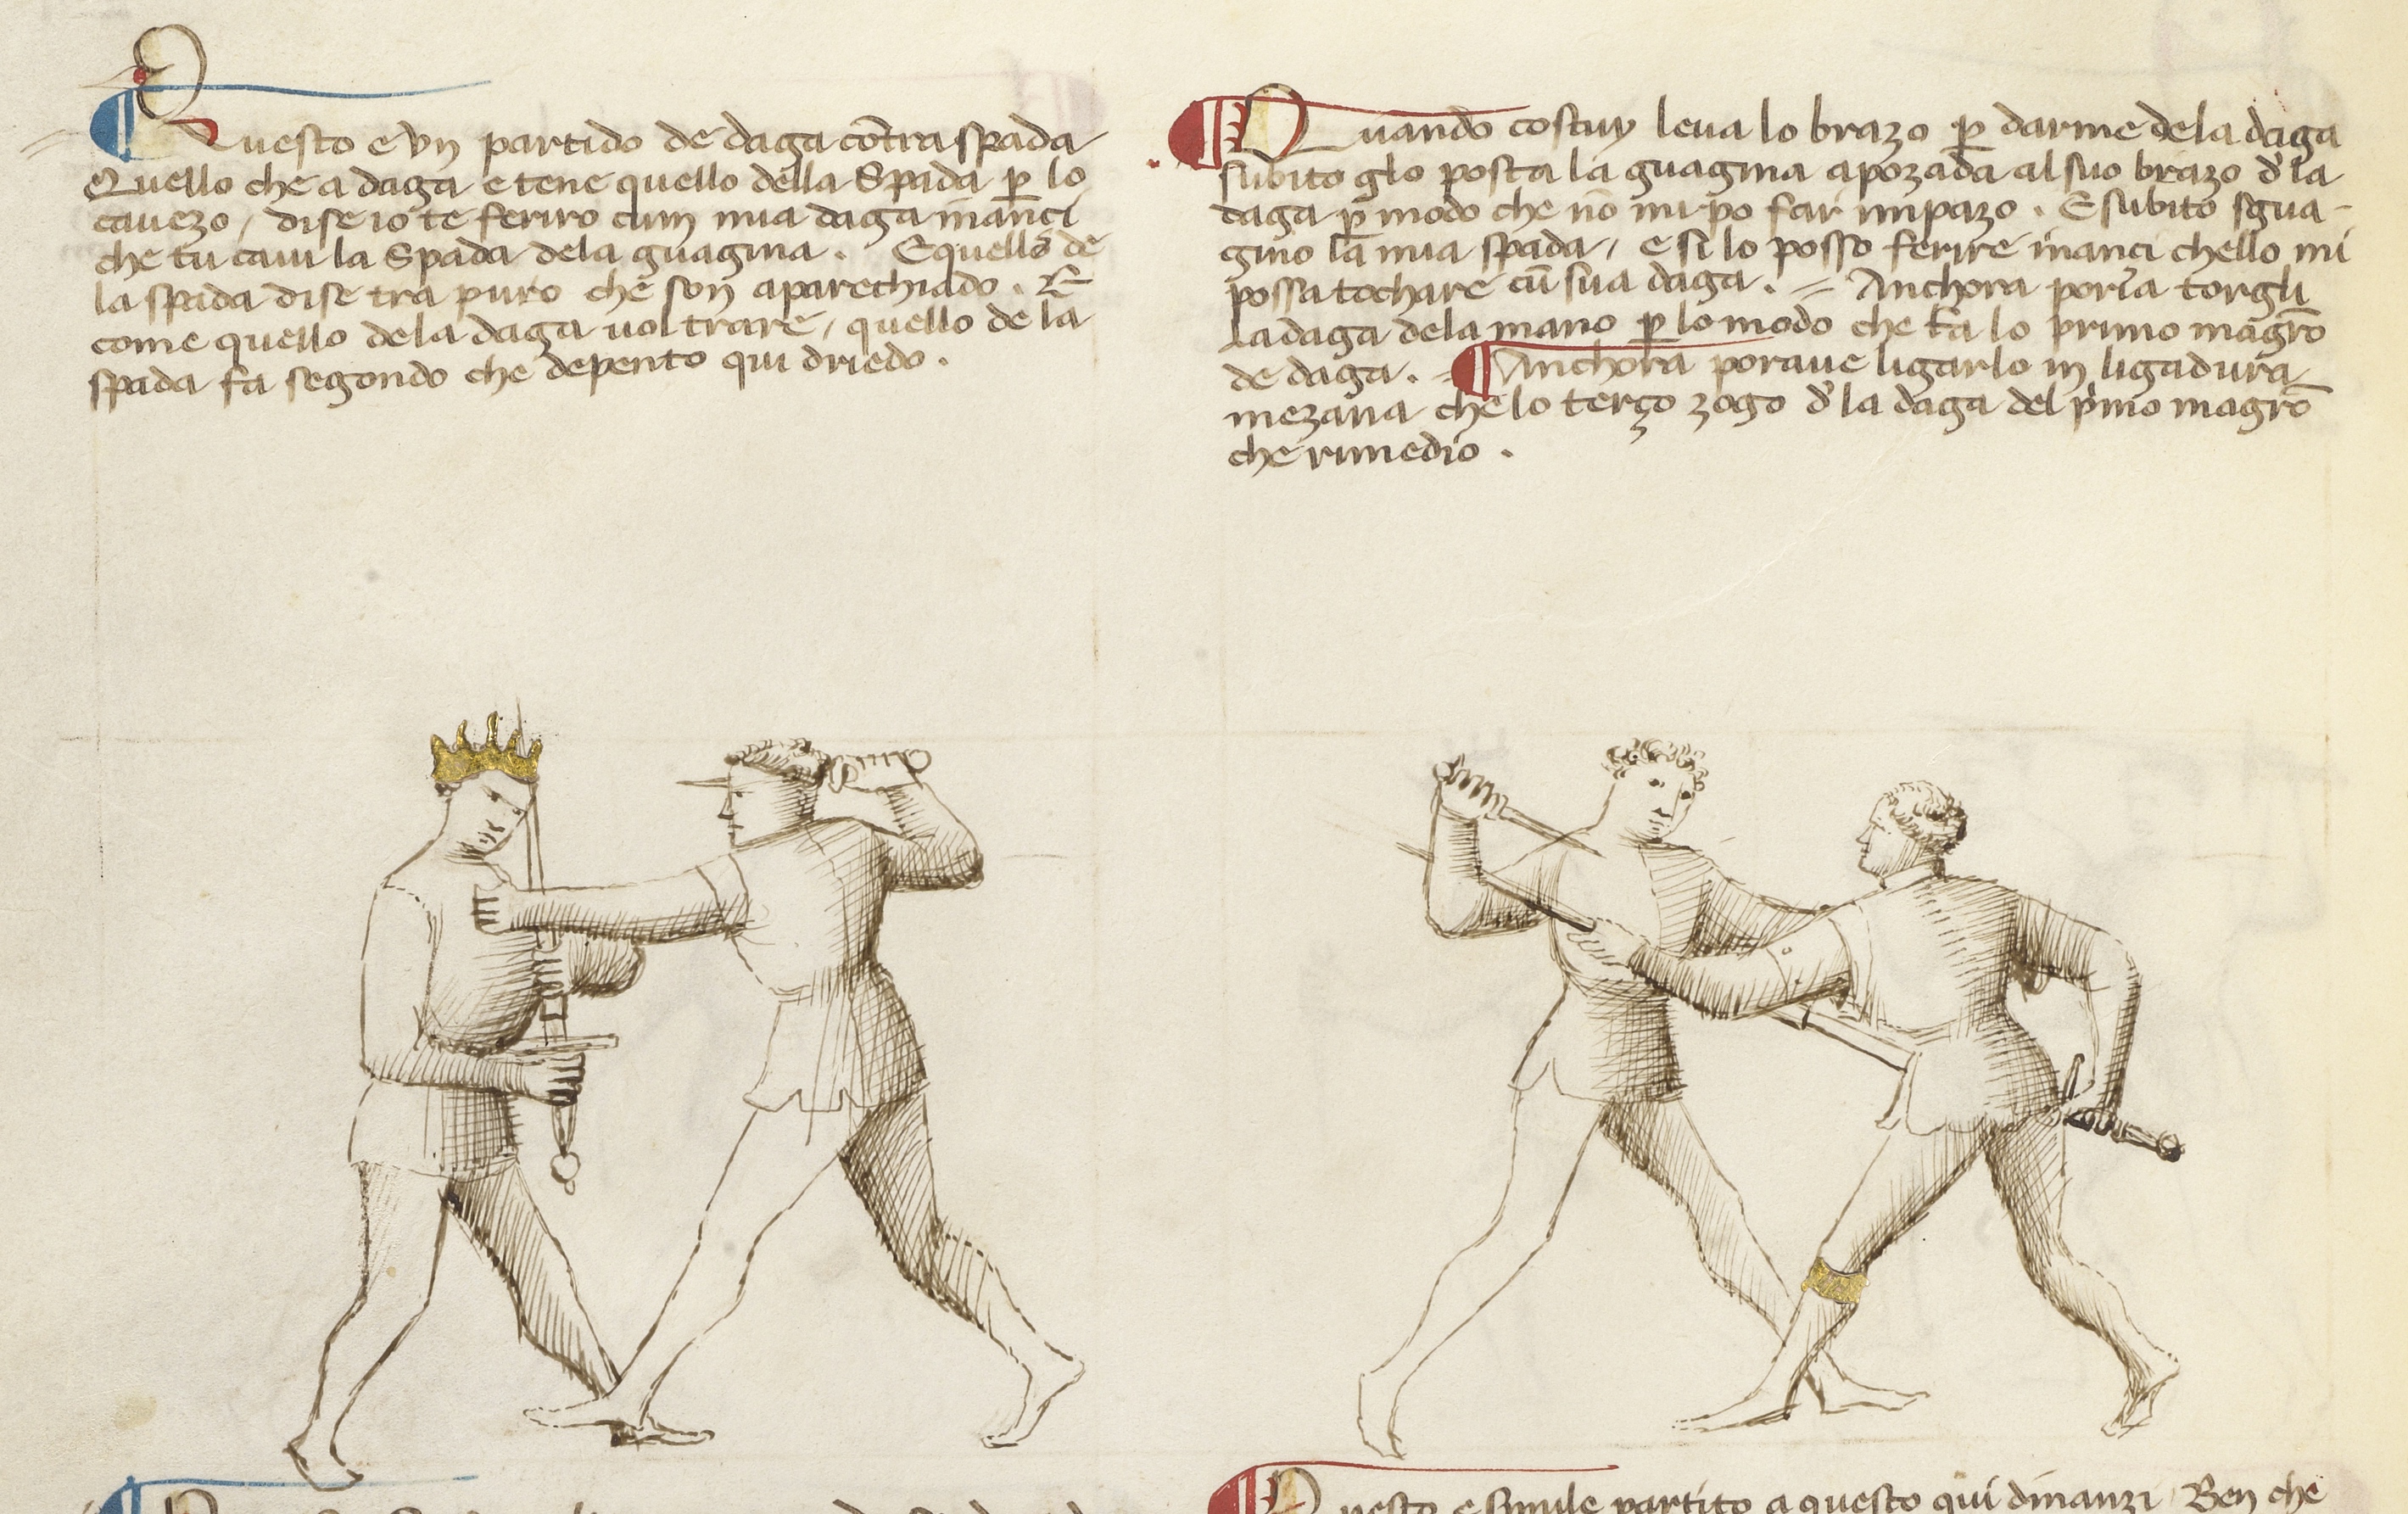 Questo e un partido de daga cōtra spada
Quello che a daga e tene quello della Spada p̱ lo
cavezo / dise io te feriro cum mia daga inanci
che tu cavi la Spada dela guagina . E quello de
la spada dise tra puro che son aparechiado . E
come quello dela daga vol trare / quello de la
spada fa segondo che depento qui driedo .
Quando costuy leva lo brazo p̱ darme dela daga
subito glo posta la guagina apozada al suo brazo d'la
daga p̱ modo che nō mi po far impazo . E subito sgua-
gino la mia spada / e si lo posso ferire inanci chello mi
possa tochare cū sua daga . = Anchora poria torgli
la daga dela mano p̱ lo modo che fa lo primo magrō
de daga . = Anchora porave ligarlo in ligadura
mezana che lo terço zogo d'la daga del p'mo magrō
che rimedio .
Questo e simile partito a questo qui dinanzi / Ben che